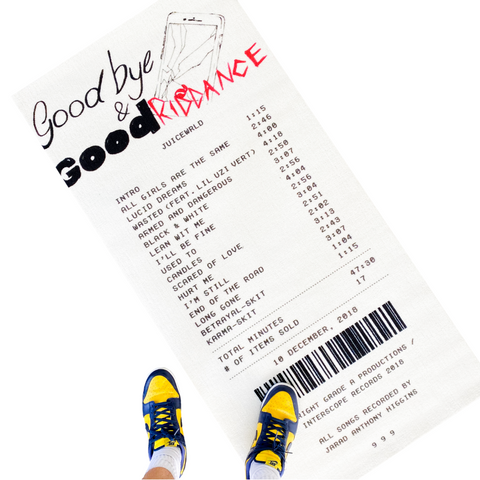 Good bye
&
Good RIDDANCE
JUICEWRLD
INTRO 1:15
ALL GIRLS ARE THE SAME 2:46
LUCID DREAMS 4:00
WASTED (FEAT. LIL UZI VERT) 4:10
ARMED AND DANGEROUS 2:50
BLACK & WHITE 3:07
LEAN WIT ME 2:56
I'LL BE FINE 4:04
USED TO 2:56
CANDLES 3:04
SCARED OF LOVE 2:51
HURT ME 2:02
I'M STILL 3:13
END OF THE ROAD 2:43
LONG GONE 3:07
BETRAYAL-SKIT 1:04
KARMA-SKIT 1:15
TOTAL MINUTES 47:30
# OF ITEMS SOLD 17
10 DECEMBER, 2018
RIGHT GRADE A PRODUCTIONS /
INTERSCOPE RECORDS 2018
ALL SONGS RECORDED BY
JARAD ANTHONY HIGGINS
9 9 9